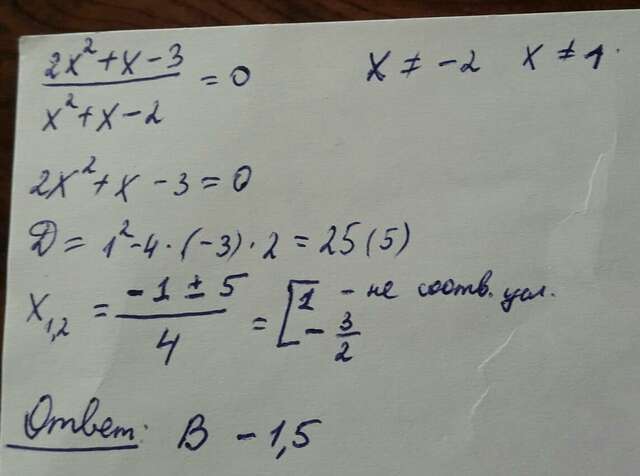 (2x² + x − 3) / (x² + x − 2) = 0   x ≠ −2   x ≠ 1.
2x² + x − 3 = 0
D = 1² − 4 · (−3) · 2 = 25 (5)
x₁,₂ = (−1 ± 5) / 4 = [ 1 - не соотв. усл.
− 3/2
Ответ: B − 1,5